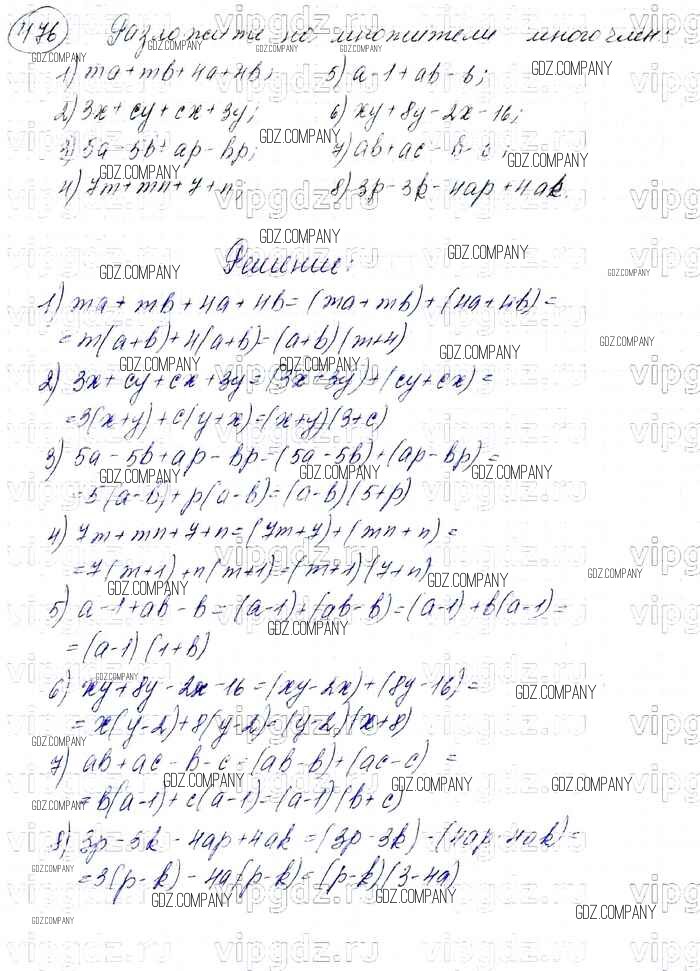 476 Разложите на множители многочлен:
1) ma + mb + 4a + 4b; 5) a - 1 + ab - b;
2) 3x + cy + cx + 3y; 6) xy + 8y - 2x - 16;
3) 5a - 5b + ap - bp; 7) ab + ac - b - c;
4) 7m + mn + 7 + n; 8) 3p - 3k - 4ap + 4ak.
Решение:
1) ma + mb + 4a + 4b = (ma + mb) + (4a + 4b) =
= m(a+b) + 4(a+b) = (a+b)(m+4)
2) 3x + cy + cx + 3y = (3x + 3y) + (cy + cx) =
= 3(x+y) + c(y+x) = (x+y)(3+c)
3) 5a - 5b + ap - bp = (5a - 5b) + (ap - bp) =
= 5(a-b) + p(a-b) = (a-b)(5+p)
4) 7m + mn + 7 + n = (7m + 7) + (mn + n) =
= 7(m+1) + n(m+1) = (m+1)(7+n)
5) a - 1 + ab - b = (a-1) + (ab - b) = (a-1) + b(a-1) =
= (a-1)(1+b)
6) xy + 8y - 2x - 16 = (xy - 2x) + (8y - 16) =
= x(y-2) + 8(y-2) = (y-2)(x+8)
7) ab + ac - b - c = (ab - b) + (ac - c) =
= b(a-1) + c(a-1) = (a-1)(b+c)
8) 3p - 3k - 4ap + 4ak = (3p - 3k) - (4ap - 4ak) =
= 3(p-k) - 4a(p-k) = (p-k)(3-4a)
GDZ.COMPANY
vipgdz.ru